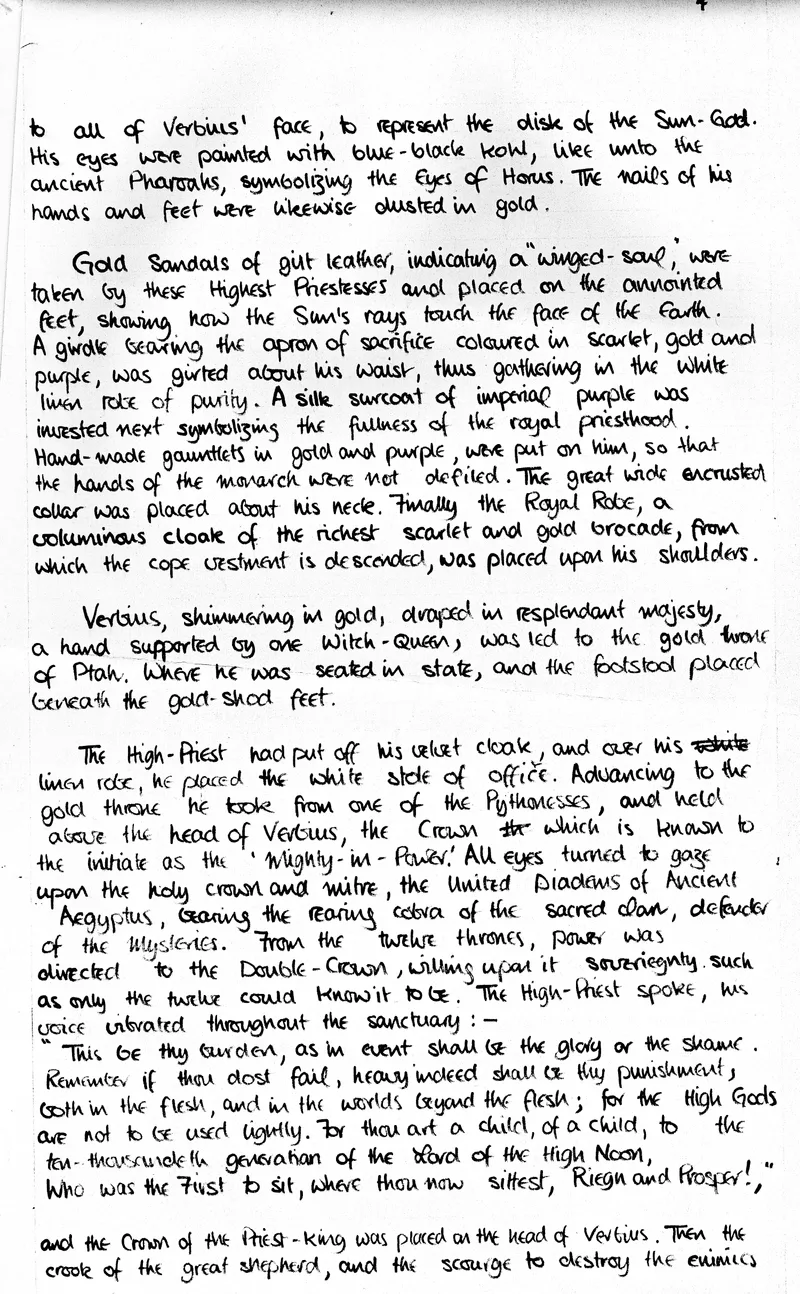 4
to all of Verbius' face, to represent the disk of the Sun-God.
His eyes were painted with blue-black kohl, like unto the
ancient Pharoahs, symbolizing the Eyes of Horus. The nails of his
hands and feet were likewise dusted in gold.
Gold Sandals of gilt leather, indicating a "winged-soul," were
taken by these Highest Priestesses and placed on the annointed
feet, showing how the Sun's rays touch the face of the Earth.
A girdle bearing the apron of sacrifice coloured in scarlet, gold and
purple, was girted about his waist, thus gathering in the white
linen robe of purity. A silk surcoat of imperial purple was
invested next symbolizing the fullness of the royal priesthood.
Hand-made gauntlets in gold and purple, were put on him, so that
the hands of the monarch were not defiled. The great wide encrusted
collar was placed about his neck. Finally the Royal Robe, a
voluminous cloak of the richest scarlet and gold brocade, from
which the cope vestment is descended, was placed upon his shoulders.
Verbius, shimmering in gold, draped in resplendant majesty,
a hand supported by one Witch-Queen, was led to the gold throne
of Ptah. Where he was seated in state, and the footstool placed
beneath the gold-shod feet.
The High-Priest had put off his velvet cloak, and over his white
linen robe, he placed the white stole of office. Advancing to the
gold throne he took from one of the Pythonesses, and held
above the head of Verbius, the Crown which is known to
the initiate as the 'Mighty-in-Power.' All eyes turned to gaze
upon the holy crown and mitre, the United Diadems of Ancient
Aegyptus, bearing the rearing cobra of the sacred clan, defender
of the Mysteries. From the twelve thrones, power was
directed to the Double-Crown, willing upon it soveriegnty such
as only the twelve could know it to be. The High-Priest spoke, his
voice vibrated throughout the sanctuary :-
"This be thy burden, as in event shall be the glory or the shame.
Remember if thou dost fail, heavy indeed shall be thy punishment,
both in the flesh, and in the worlds beyond the flesh; for the High Gods
are not to be used lightly. For thou art a child, of a child, to the
ten-thousandeth generation of the Lord of the High Noon,
Who was the First to sit, where thou now sittest, Riegn and Prosper!,"
and the Crown of the Priest-King was placed on the head of Verbius. Then the
crook of the great shepherd, and the scourge to destroy the enimies